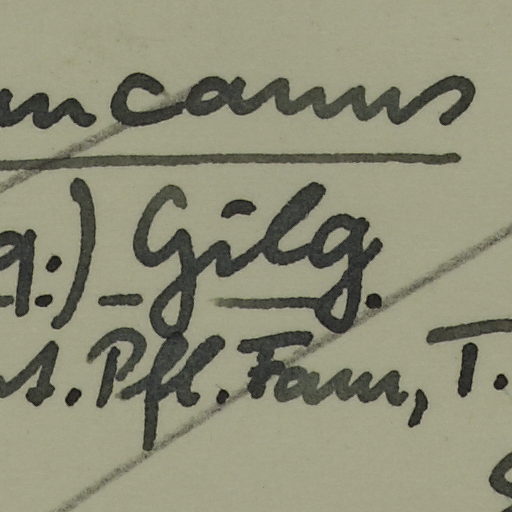 uncanus
q.) Gilg.
t. Pfl. Fam, T.